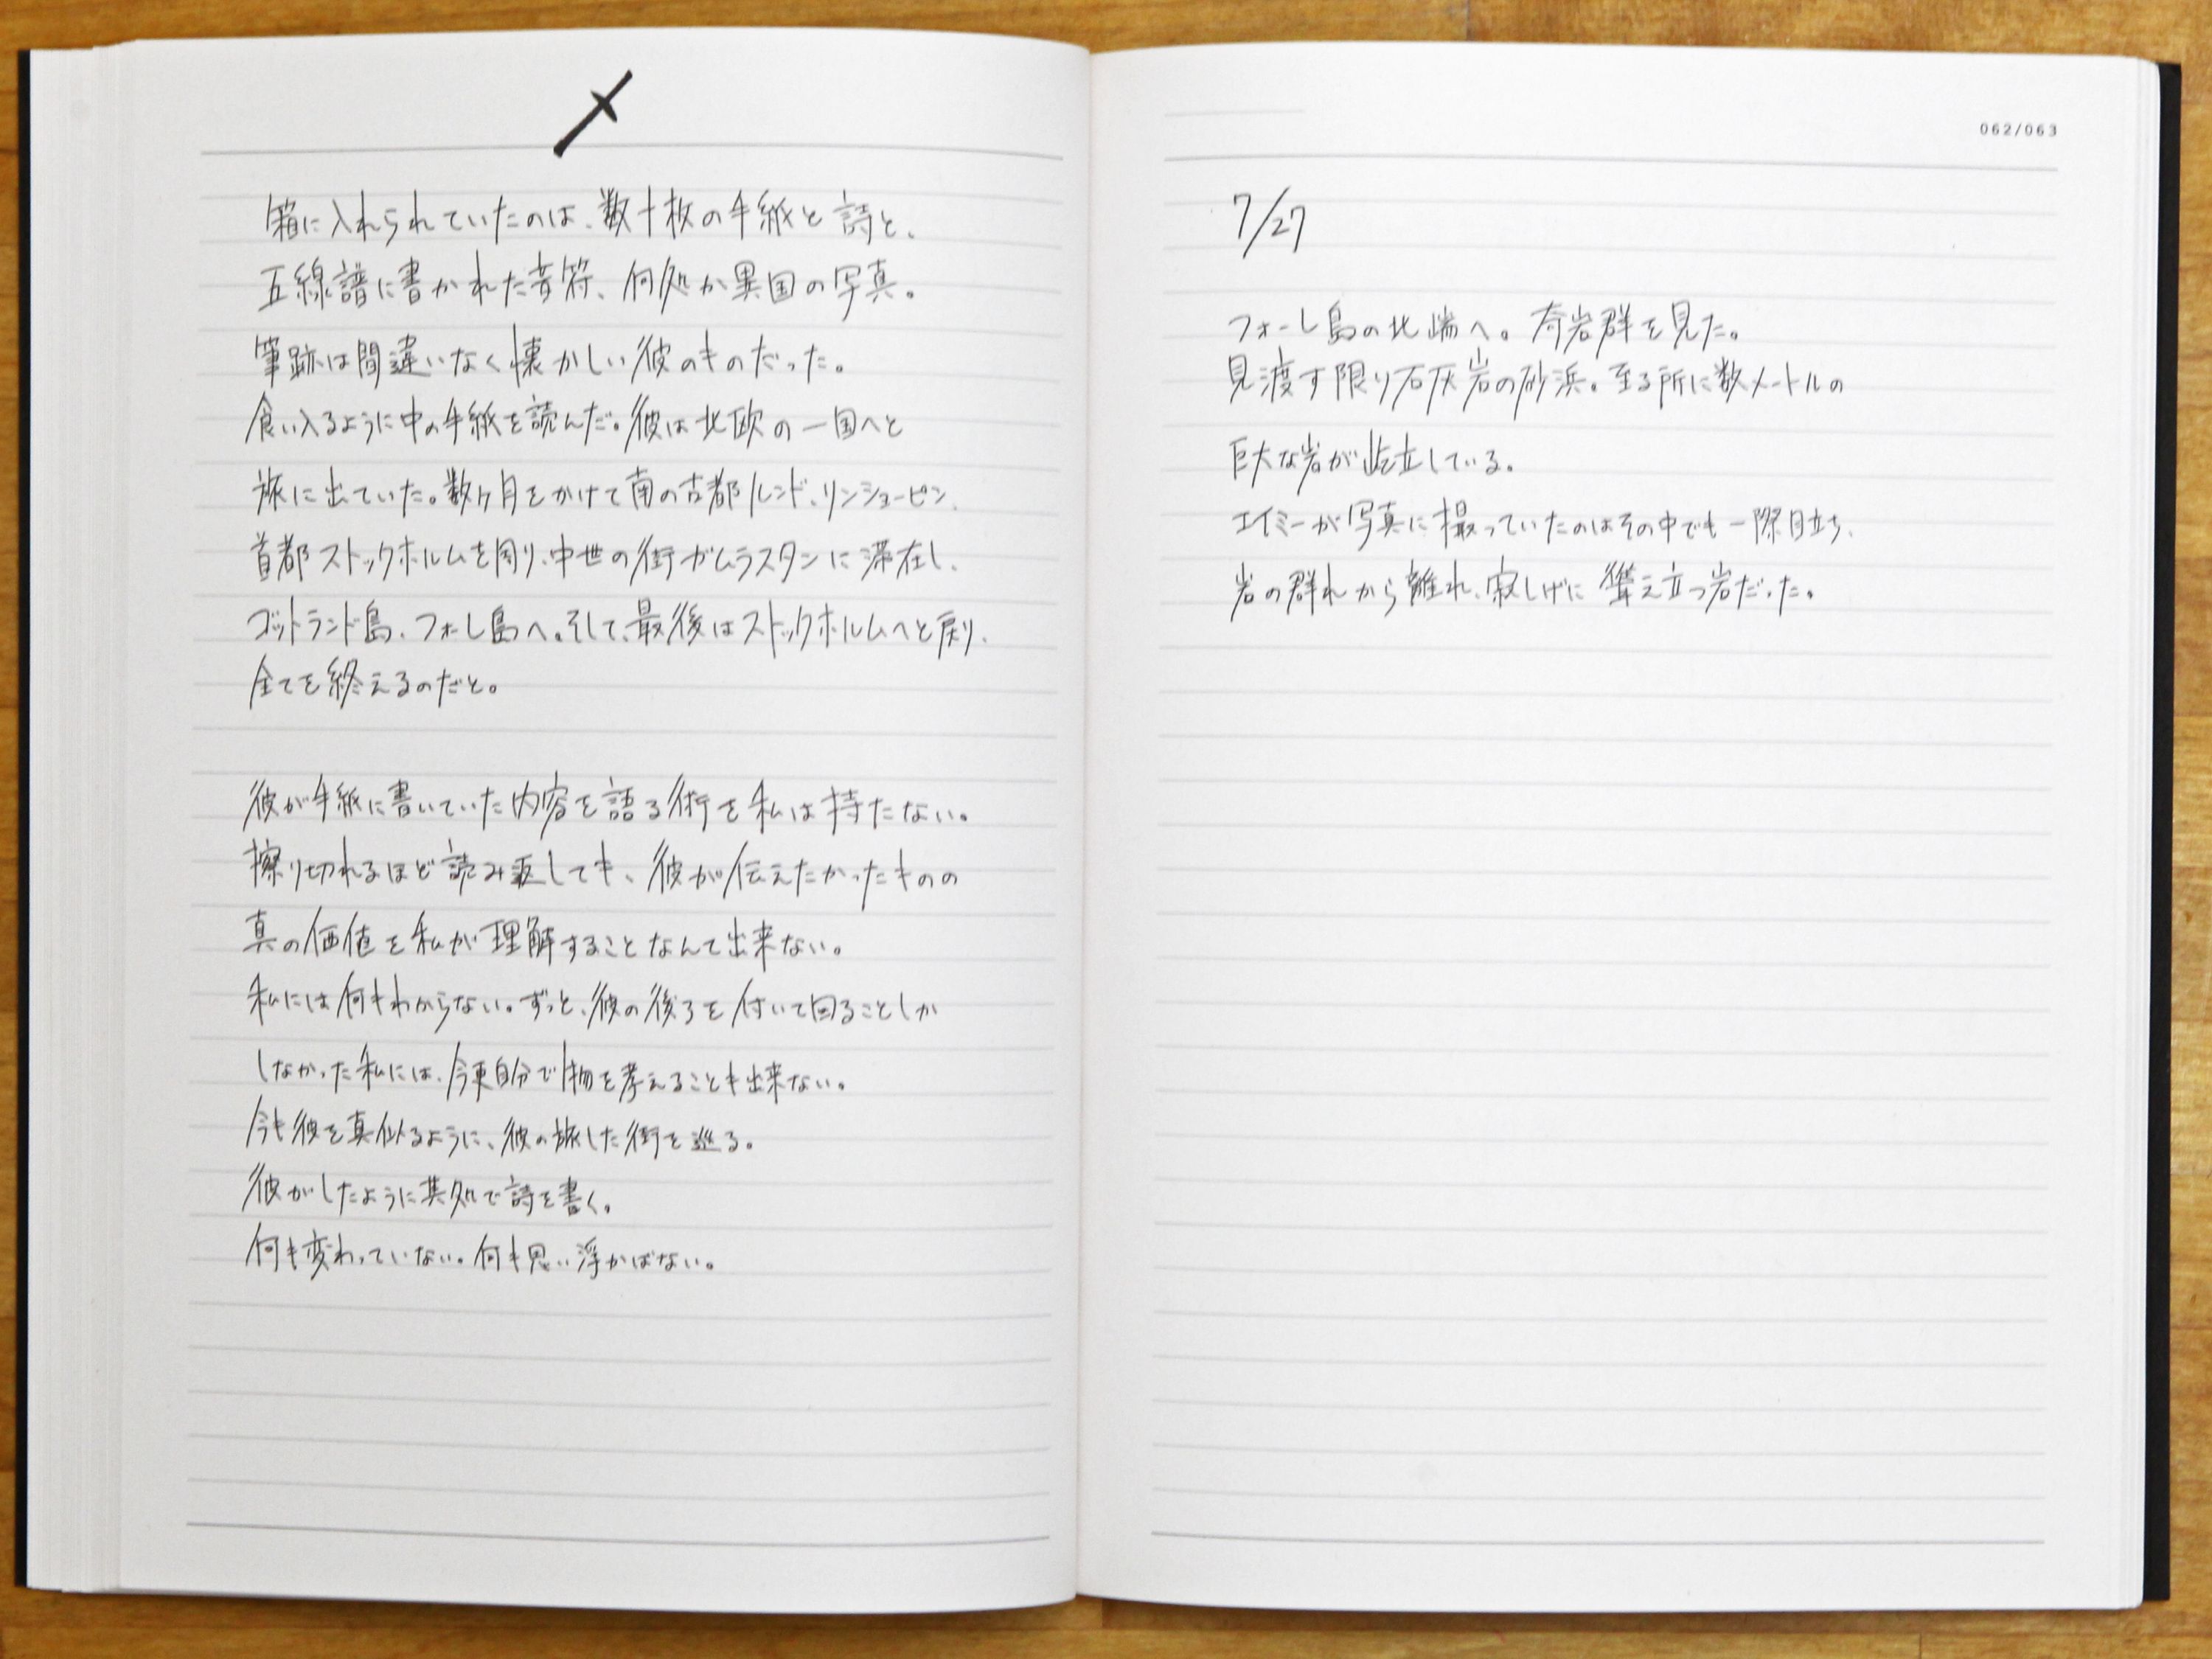 箱に入れられていたのは、数十枚の手紙と詩と、
五線譜に書かれた音符、何処か異国の写真。
筆跡は間違いなく懐かしい彼のものだった。
食い入るように中の手紙を読んだ。彼は北欧の一国へと
旅に出ていた。数ヶ月をかけて南の古都ルンド、リンショーピン、
首都ストックホルムを周り、中世の街ガムラスタンに滞在し、
ゴットランド島、フォーレ島へ。そして、最後はストックホルムへと戻り、
全てを終えるのだと。
彼が手紙に書いていた内容を語る術を私は持たない。
擦り切れるほど読み返しても、彼が伝えたかったものの
真の価値を私が理解することなんて出来ない。
私には何もわからない。ずっと、彼の後ろを付いて回ることしか
しなかった私には、今更自分で物を考えることも出来ない。
今も彼を真似るように、彼の旅した街を巡る。
彼がしたように其処で詩を書く。
何も変わっていない。何も思い浮かばない。
062/063
7/27
フォーレ島の北端へ。奇岩群を見た。
見渡す限り石灰岩の砂浜。至る所に数メートルの
巨大な岩が屹立している。
エイミーが写真に撮っていたのはその中でも一際目立ち、
岩の群れから離れ、寂しげに聳え立つ岩だった。